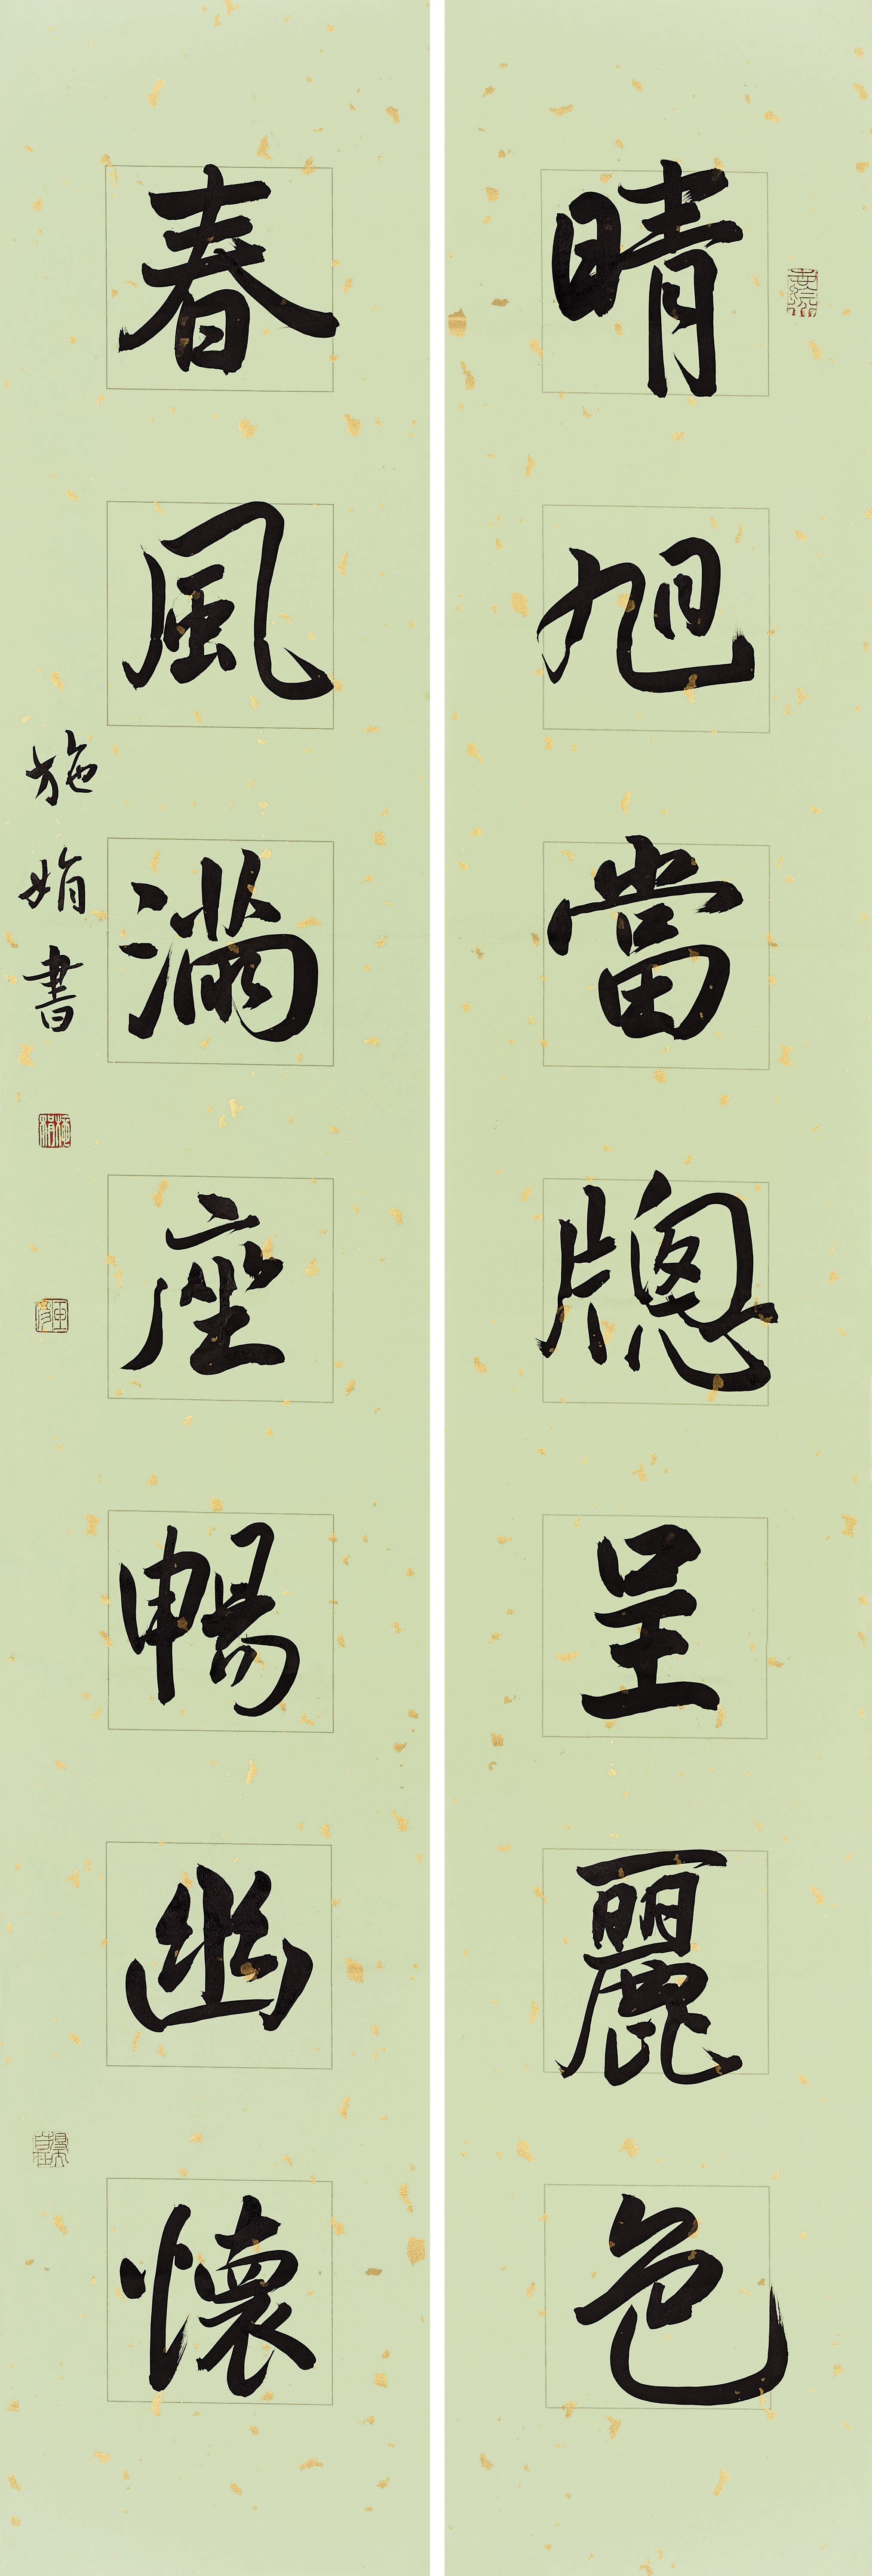 晴旭當牕呈麗色
春風滿座暢幽懷
施娟書
施娟